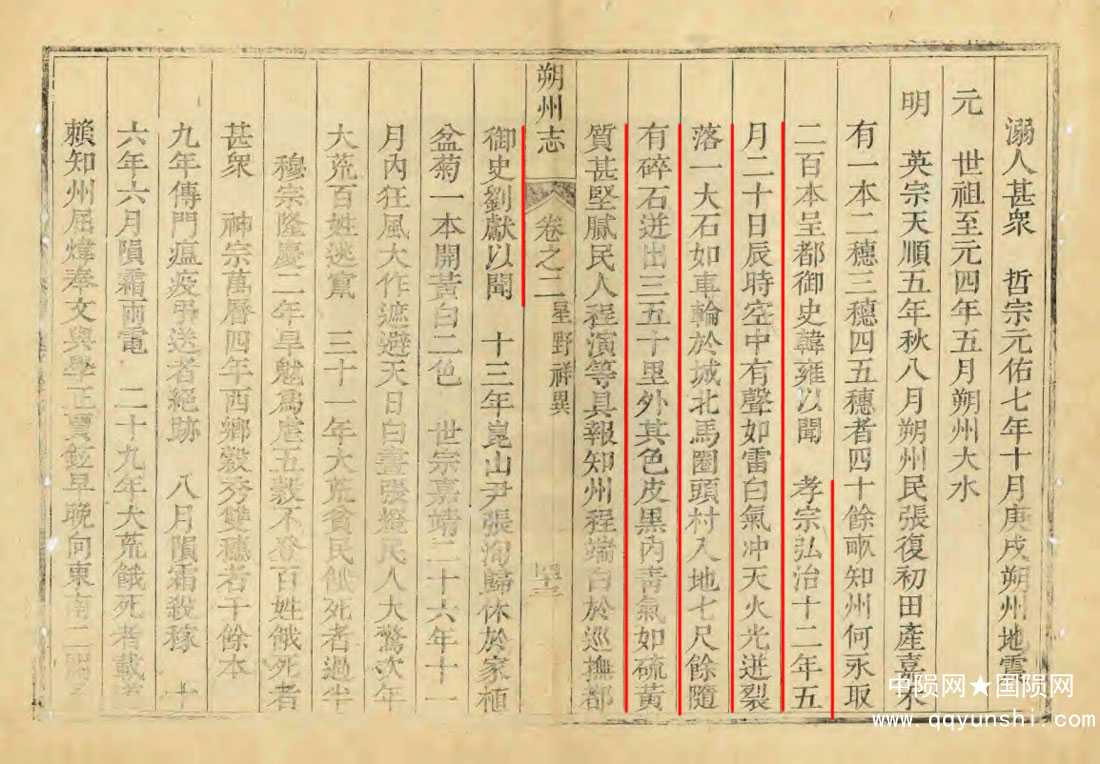 溺人甚衆　哲宗元佑七年十月庚戌朔州地震
元　世祖至元四年五月朔州大水
明　英宗天順五年秋八月朔州民張復初田產嘉禾
有一本二穗三穗四五穗者四十餘畝知州何永取
二百本呈都御史韓雍以聞　孝宗弘治十二年五
月二十日辰時空中有聲如雷白氣冲天火光迸裂
落一大石如車輪於城北馬圈頭村入地七尺餘隨
有碎石迸出三五十里外其色皮黑內靑氣如硫黃
質甚堅膩民人程演等具報知州程端白於巡撫都
朔州志　卷之二　星野祥異　四十三
御史劉獻以聞　十三年崑山尹張洵歸休於家植
盆菊一本開黃白二色　世宗嘉靖二十六年十一
月內狂風大作遮避天日白晝張燈民人大驚次年
大荒百姓逃竄　三十一年大荒貧民餓死者過半
穆宗隆慶二年旱魃爲虐五穀不登百姓餓死者
甚衆　神宗萬曆四年西鄉穀秀雙穗者千餘本
九年傳門瘟疫弔送者絕跡　八月隕霜殺稼　十
六年六月隕霜雨雹　二十九年大荒餓死者載道
賴知州屈煒奉文與學正雲鈜早晚向東南二
中陨网★国陨网
www.qqyunshi.com